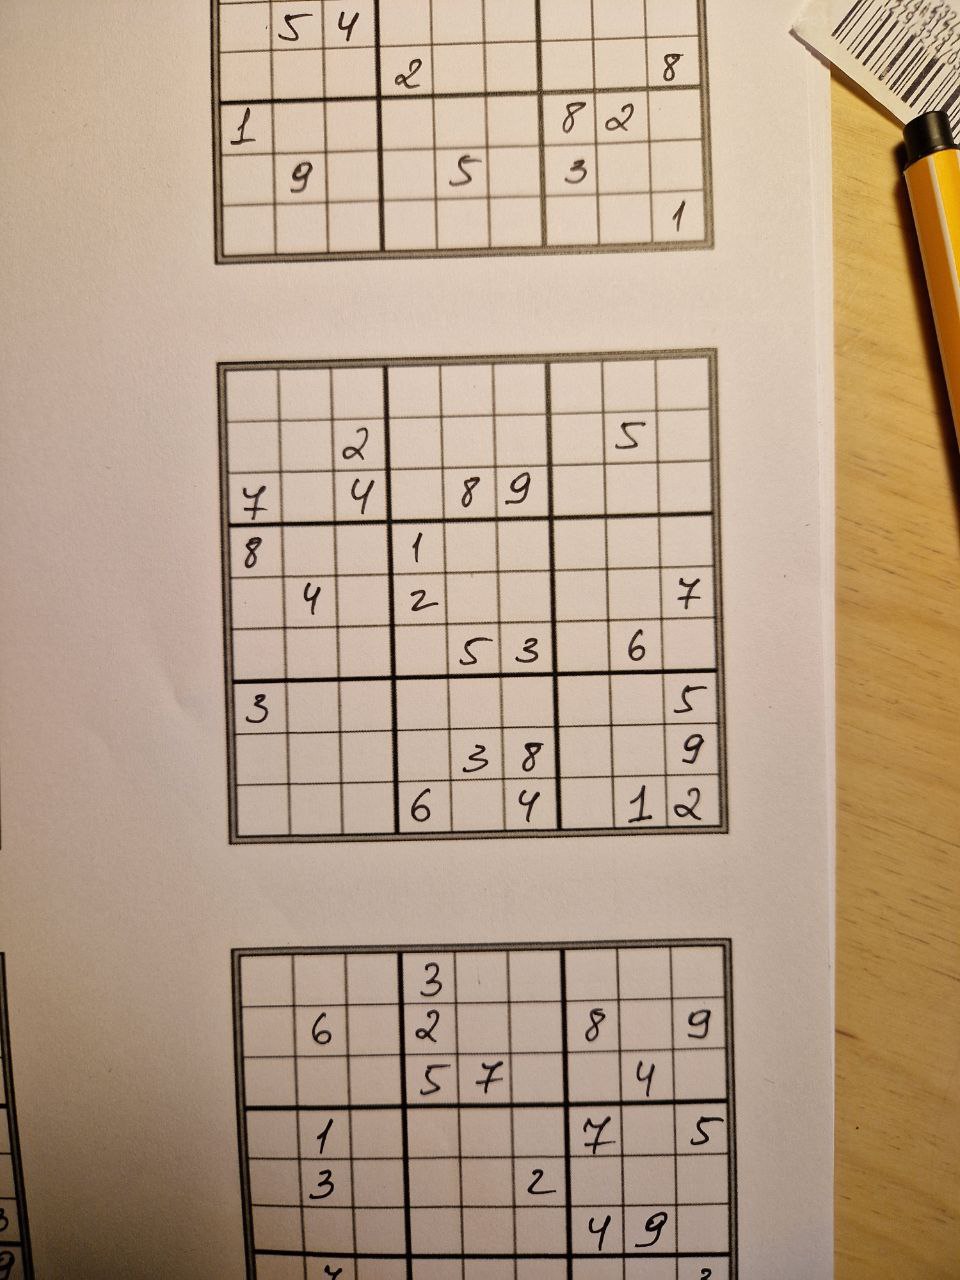 5 4
2 8
1 8 2
9 5 3
1
2 5
7 4 8 9
8 1
4 2 7
5 3 6
3 5
3 8 9
6 4 1 2
3
6 2 8 9
5 7 4
1 7 5
3 2
3
4 9
9